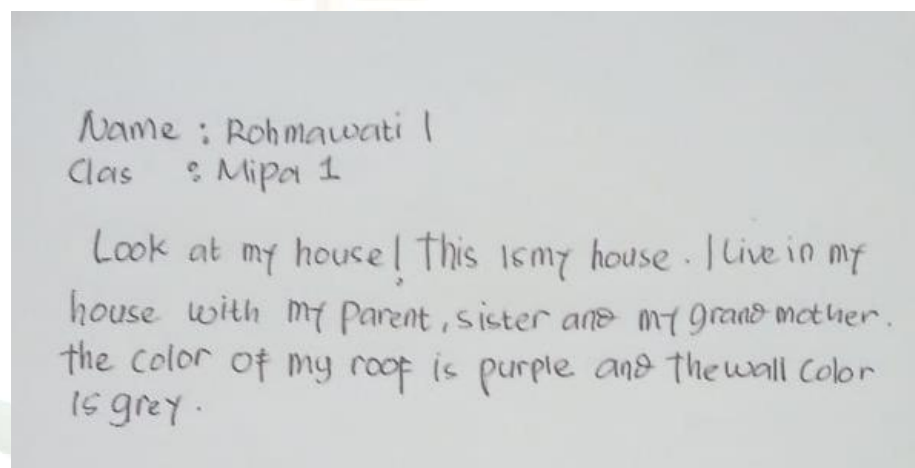 Name : Rohmawati I
Clas : Mipa 1
Look at my house! This is my house. I Live in my
house with my parent, sister and my grand mother.
the color of my roof is purple and the wall color
is grey.